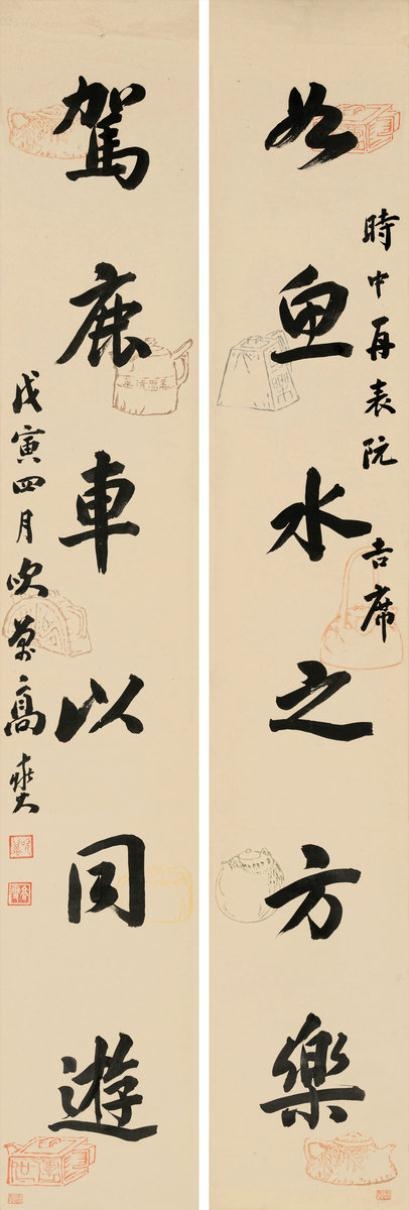 時中再表阮 吉席
如魚水之方樂
駕鹿車以同遊
戊寅四月吹萬高燮